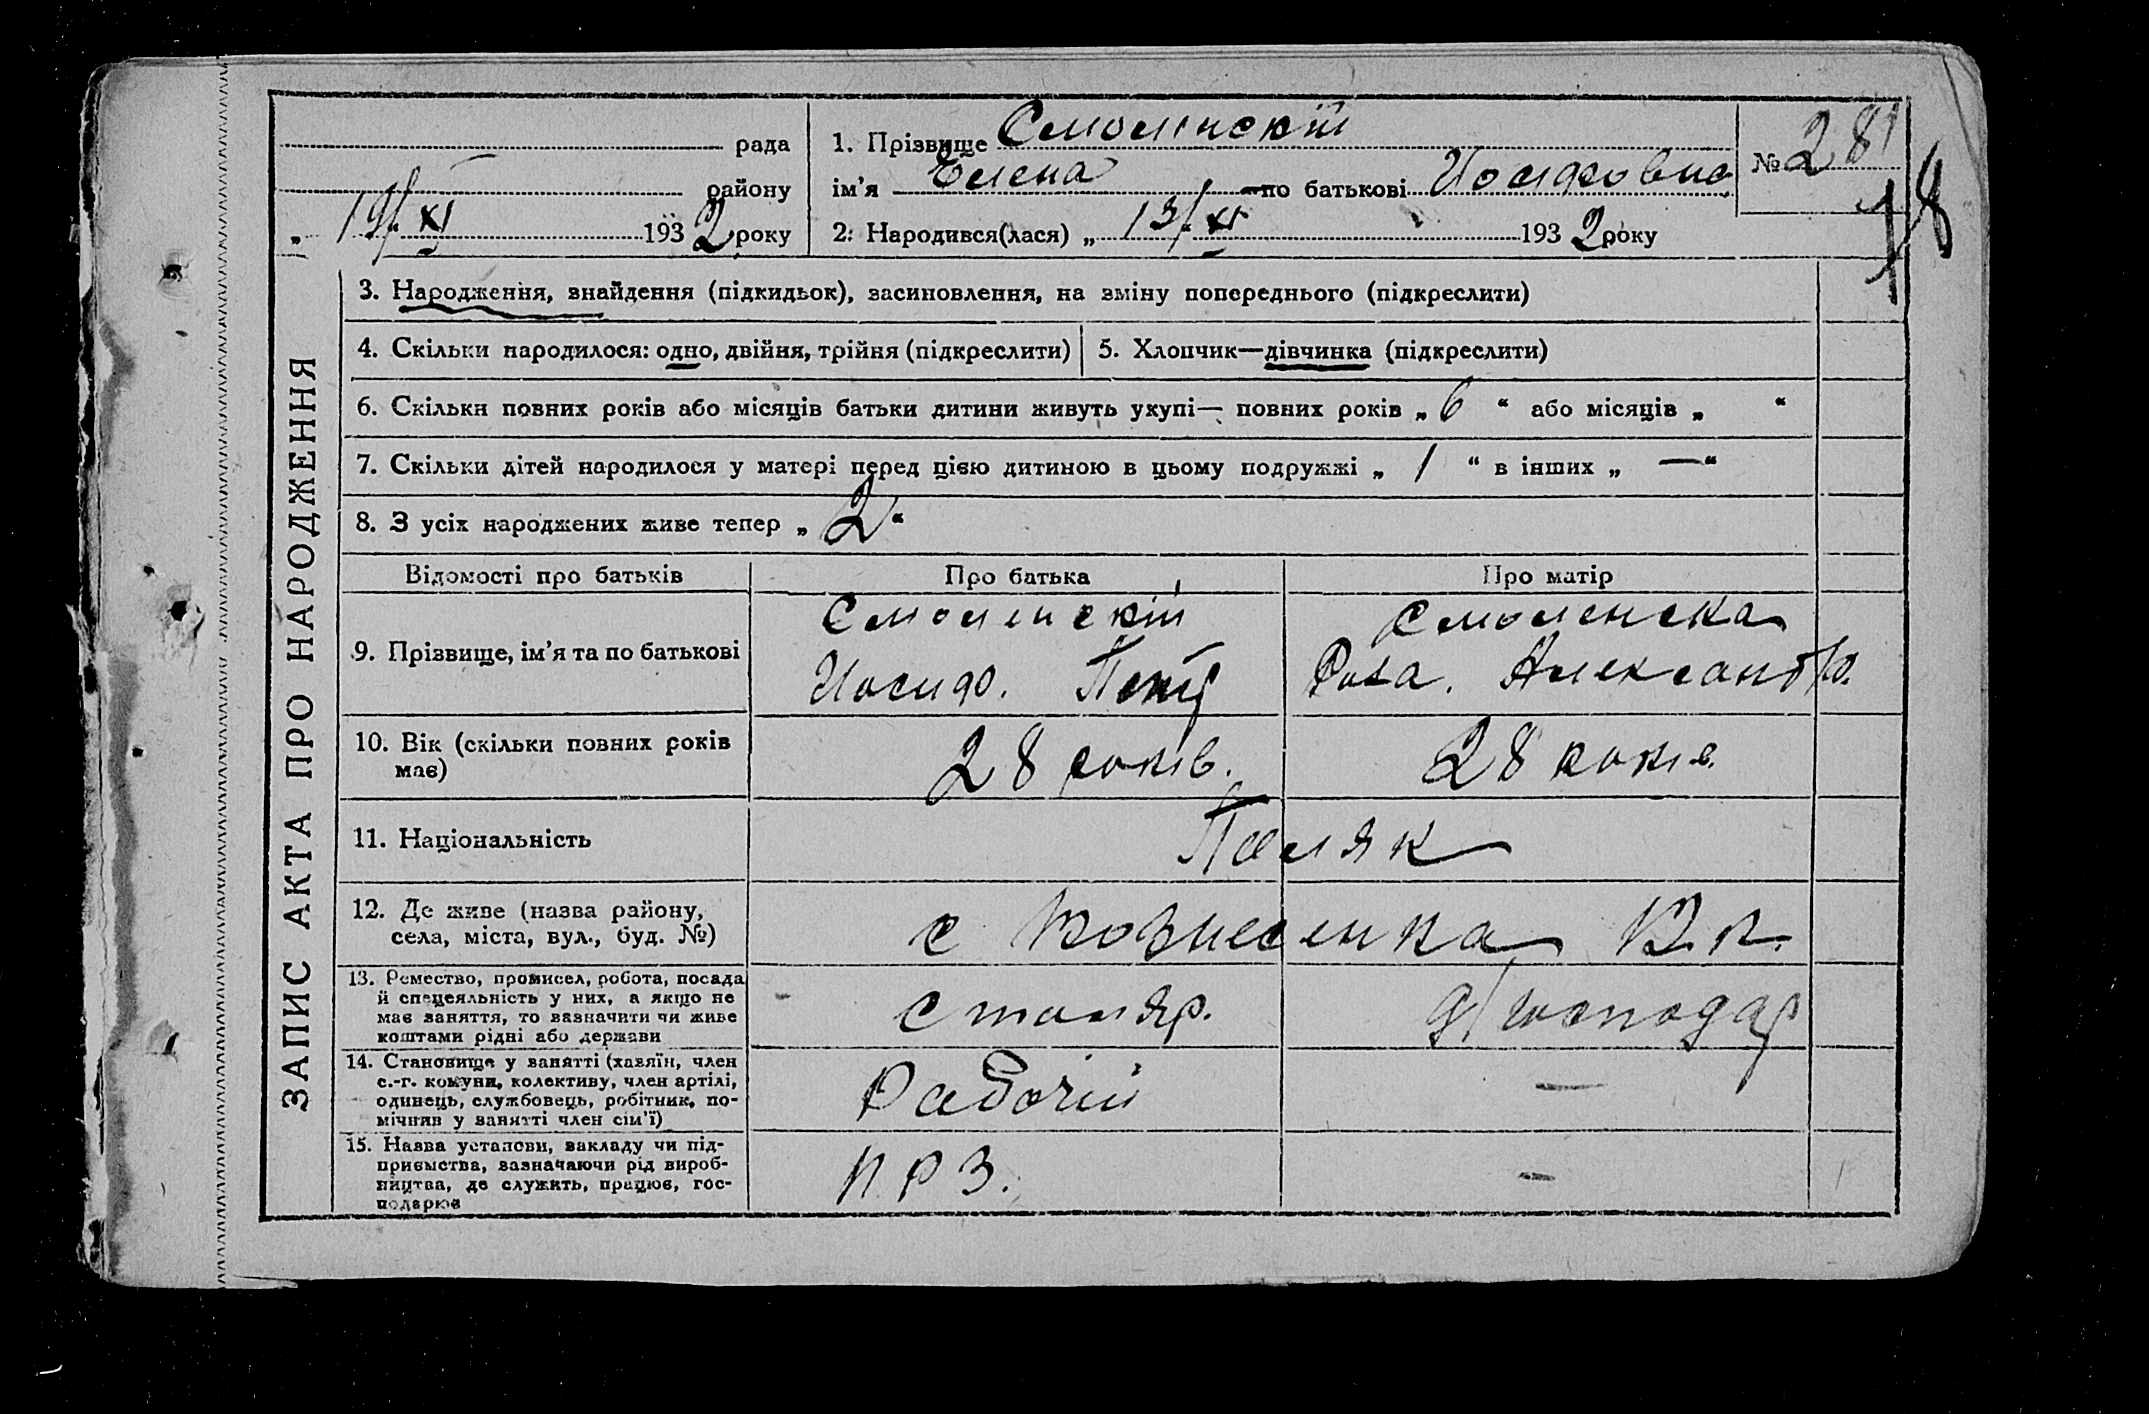 рада
району
„ 19/XI 1932 року
1. Прізвище Смоленскій
ім'я Елена по батькові Иосифовна
2. Народився(лася) „ 13/XI 1932 року
№ 281
18
ЗАПИС АКТА ПРО НАРОДЖЕННЯ
3. Народження, знайдення (підкидьок), засиновлення, на зміну попереднього (підкреслити)
4. Скільки народилося: одно, двійня, трійня (підкреслити)
5. Хлопчик—дівчинка (підкреслити)
6. Скільки повних років або місяців батьки дитини живуть укупі— повних років „ 6 “ або місяців „ “
7. Скільки дітей народилося у матері перед цією дитиною в цьому подружжі „ 1 “ в інших „ — “
8. З усіх народжених живе тепер „ 2 “
Відомості про батьків
Про батька
Про матір
9. Прізвище, ім'я та по батькові
Смоленскій
Иосиф.
Смоленска
Роза. Александр.
10. Вік (скільки повних років
має)
28 років.
28 років.
11. Національність
Поляк
12. Де живе (назва району,
села, міста, вул., буд. №)
с Вознесенка
13. Ремество, промисел, робота, посада
й спецеяльність у них, а якщо не
має заняття, то вазначити чи живе
коштами рідні або держави
столяр.
д/господар
14. Становище у занятті (хазяїн, член
с.-г. комуни, колективу, член артілі,
одинець, службовець, робітник, по-
мічняв у занятті член сім'ї)
Рабочій
—
15. Назва установи, закладу чи під-
приємства, зазначаючи рід вироб-
ництва, де служить, працює, гос-
подарює
П Р З.
—